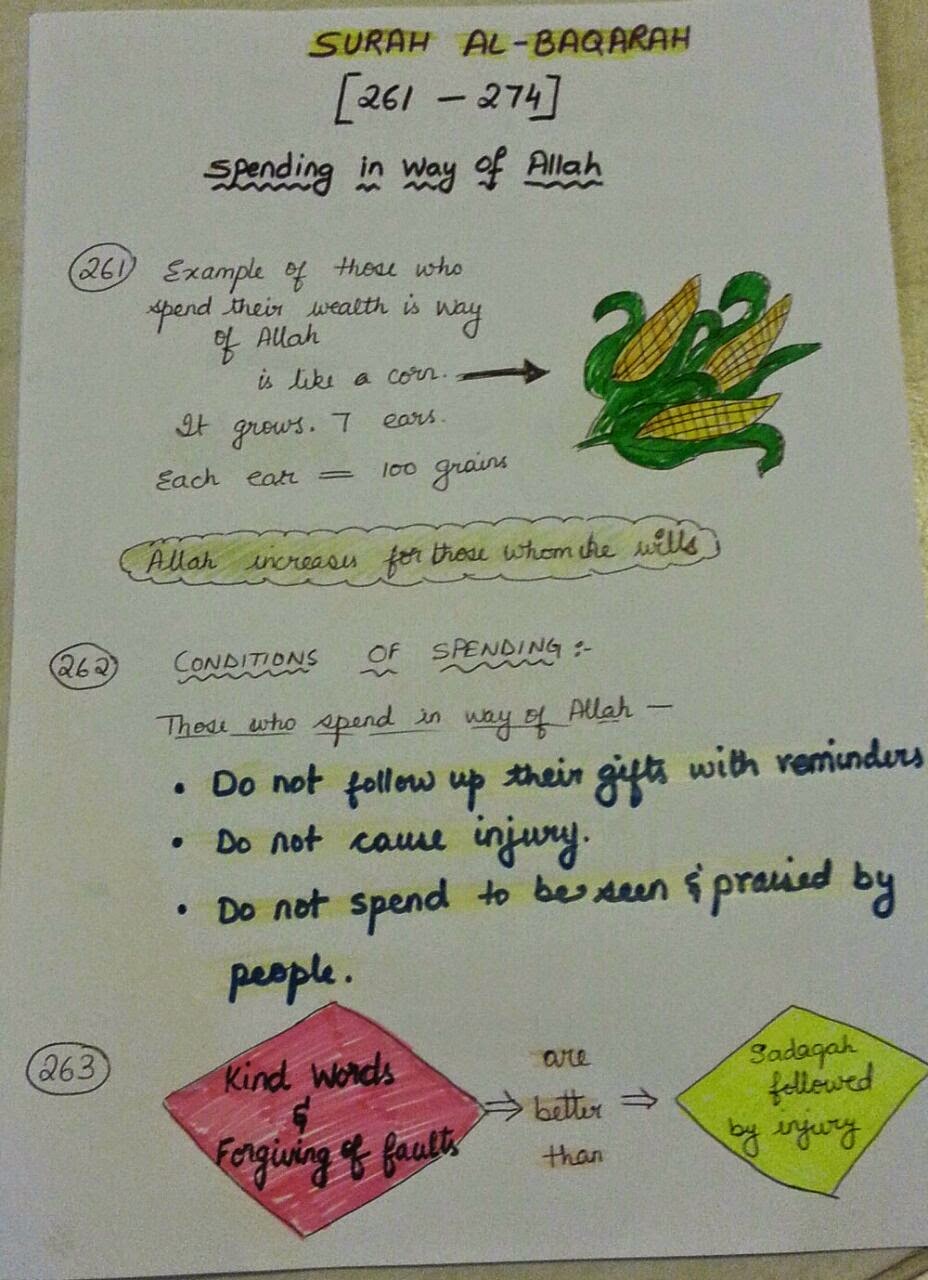 SURAH AL-BAQARAH
[261 - 274]
Spending in Way of Allah
261 Example of those who
spend their wealth is Way
of Allah
is like a corn.
It grows. 7 ears.
Each ear = 100 grains
Allah increases for those whom he wills
262 CONDITIONS OF SPENDING :-
Those who spend in way of Allah —
• Do not follow up their gifts with reminders
• Do not cause injury.
• Do not spend to be seen & praised by
people.
263
Kind Words
&
Forgiving of faults
⇒ are
better ⇒
than
Sadaqah
followed
by injury